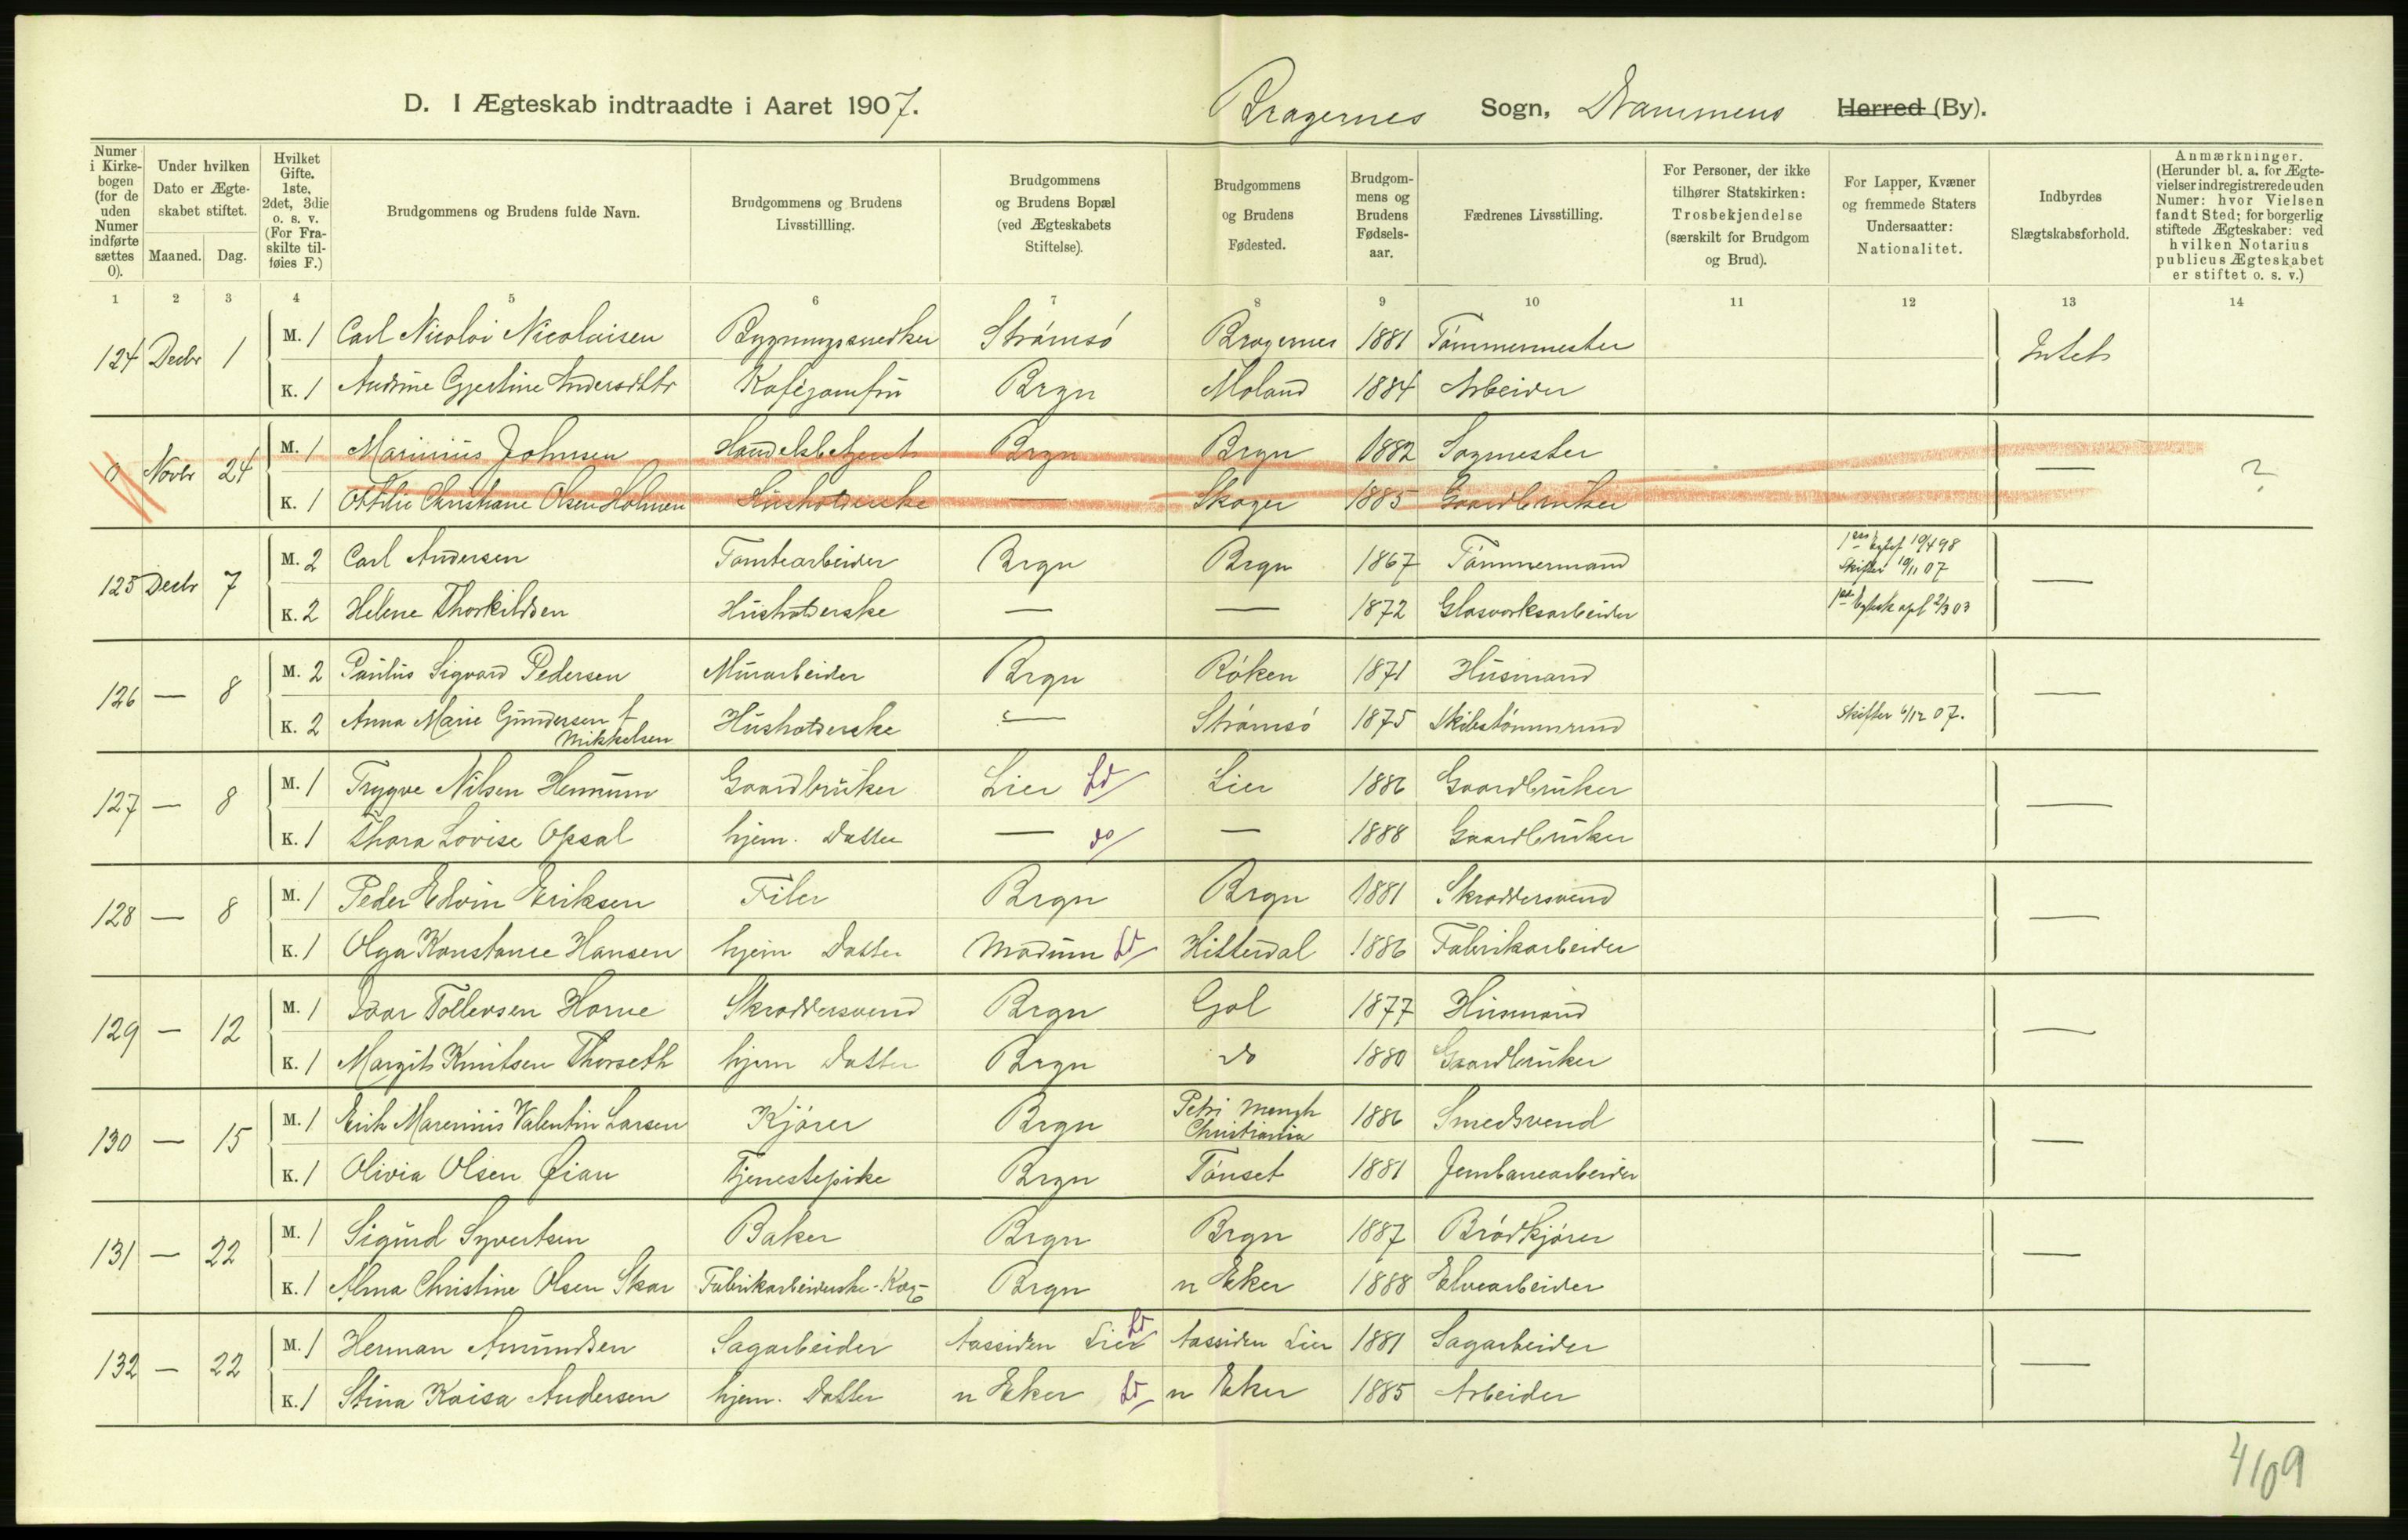 D. I Ægteskab indtraadte i Aaret 1907.
Bragernes Sogn, Drammens Herred (By).
Numer i Kirkebogen (for de uden Numer indførte sættes 0).
Under hvilken Dato er Ægteskabet stiftet.
Maaned. Dag.
Hvilket Gifte. 1ste, 2det, 3die o. s. v. (For Fraskilte tilføies F.)
Brudgommens og Brudens fulde Navn.
Brudgommens og Brudens Livsstillling.
Brudgommens og Brudens Bopæl (ved Ægteskabets Stiftelse).
Brudgommens og Brudens Fødested.
Brudgommens og Brudens Fødselsaar.
Fædrenes Livsstilling.
For Personer, der ikke tilhører Statskirken: Trosbekjendelse (særskilt for Brudgom og Brud).
For Lapper, Kvæner og fremmede Staters Undersaatter: Nationalitet.
Indbyrdes Slægtskabsforhold.
Anmærkninger. (Herunder bl. a. for Ægtevielser indregistrerede uden Numer: hvor Vielsen fandt Sted; for borgerlig stiftede Ægteskaber: ved hvilken Notarius publicus Ægteskabet er stiftet o. s. v.)
1 2 3 4 5 6 7 8 9 10 11 12 13 14
124 Decbr 1 M. 1 Carl Nicolai Nicolaisen Bygningssnedker Strømsö Bragernes 1881 Tømmermester Intet
K. 1 Andrine Gjertine Andersdttr Kaféjomfru Brgn Moland 1884 Arbeider
0 Novbr 24 M. 1 Marinius Johnsen Handelsbetjent Brgn Brgn 1882 Sagmester — ?
K. 1 Ottilie Christiane Olsen Holmen Husholderske — Skoger 1885 Gaardbruker
125 Decbr 7 M. 2 Carl Andersen Tomtearbeider Brgn Brgn 1867 Tømmermand Skifter 19/11 07 —
K. 2 Helene Thorkildsen Husholderske — — 1872 Glasværksarbeider
126 — 8 M. 2 Paulus Sigvard Pedersen Murarbeider Brgn Röken 1871 Husmand —
K. 2 Anna Marie Gundersen f. Mikkelsen Husholderske — Strømsö 1875 Skibstømmermd Skifter 6/12 07.
127 — 8 M. 1 Trygve Nilsen Hennum Gaardbruker Lier Ld Lier 1886 Gaardbruker —
K. 1 Thora Lovise Opsal hjem. Datter — do — 1888 Gaardbruker
128 — 8 M. 1 Peder Edvin Eriksen Filer Brgn Brgn 1881 Skræddersvend —
K. 1 Olga Konstance Hansen hjem Datter Modum Ld Hitterdal 1886 Fabrikarbeider
129 — 12 M. 1 Ivar Tollevsen Horve Skræddersvend Brgn Gol 1877 Husmand —
K. 1 Margit Knutsen Thorseth hjem Datter Brgn do 1880 Gaardbruker
130 — 15 M. 1 Erik Marenius Valentin Larsen Kjører Brgn Petri Mengh Christiania 1886 Smedsvend —
K. 1 Olivia Olsen Øian Tjenestepike Brgn Tönset 1881 Jernbanearbeider
131 — 22 M. 1 Sigurd Syvertsen Baker Brgn Brgn 1887 Brödkjører —
K. 1 Alma Christine Olsen Skar Fabrikarbeiderske Brgn n Eker 1888 Elvearbeider
132 — 22 M. 1 Herman Amundsen Sagarbeider Aassiden Lier Ld Aassiden Lier 1881 Sagarbeider —
K. 1 Stina Kaisa Andersen hjem. Datter n Eker Ld n Eker 1885 Arbeider
4109